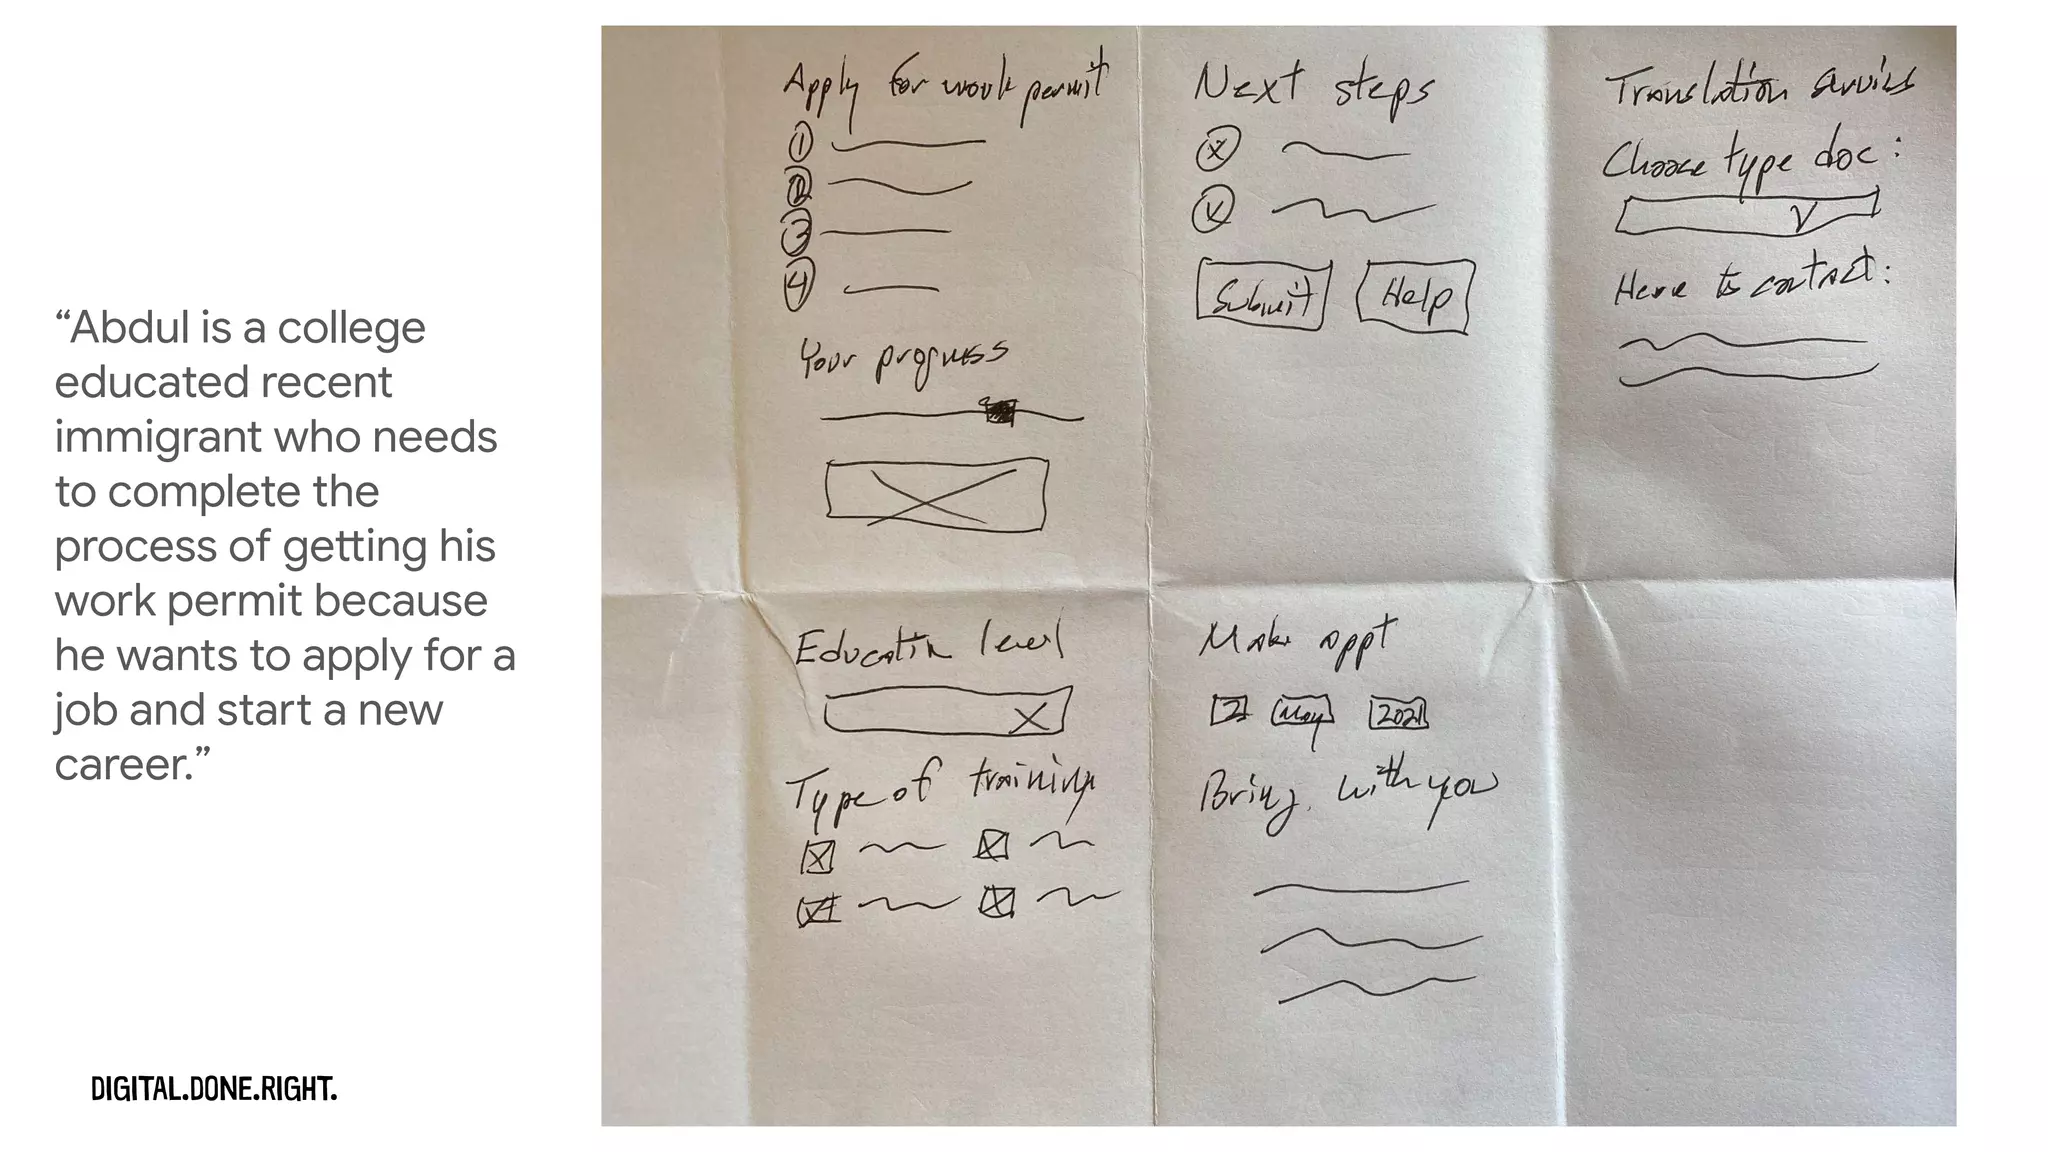 “Abdul is a college
educated recent
immigrant who needs
to complete the
process of getting his
work permit because
he wants to apply for a
job and start a new
career.”
DIGITAL.DONE.RIGHT.
Apply for work permit
1
2
3
4
Your progress
Next steps
Submit Help
Translation
Choose type doc:
V
Here to contact:
Education level
X
Type of training
Make appt
2 May 2021
Bring with you